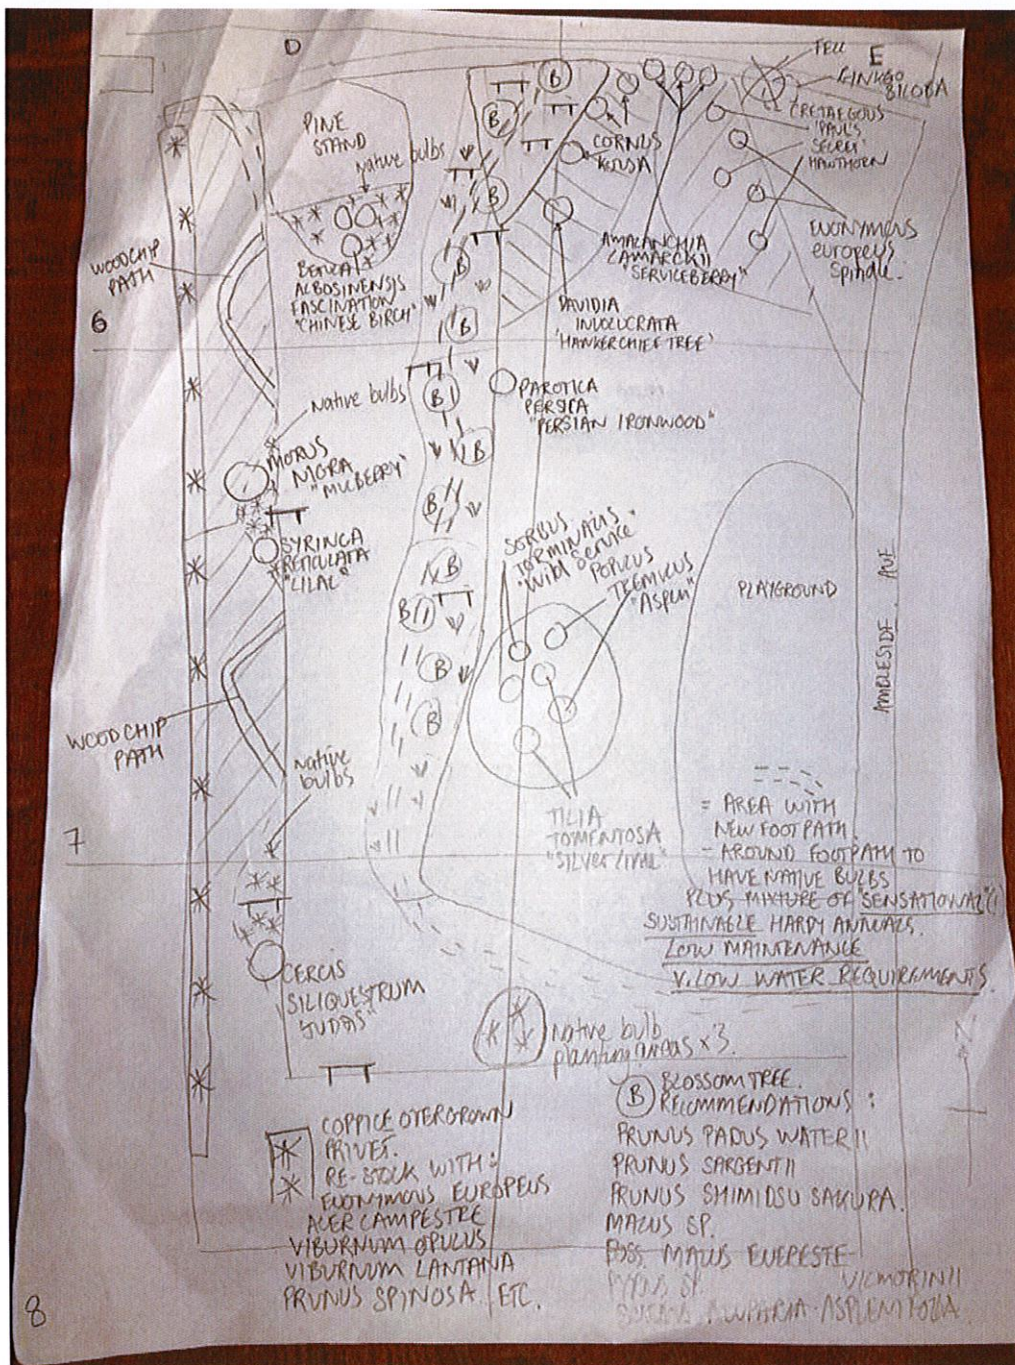 D
E
FELL
GINKGO
BILOBA
CRETAEGOUS
'PAUL'S
HAWTHORN
PINE
STAND
Native bulbs
CORNUS
KOUSA
EUONYMOUS
europeus
Spindle.
WOODCHIP
PATH
BETULA
ALBOSINENSIS
FASCINATION
"CHINESE BIRCH"
AMALANCHIA
LAMARCKII
"SERVICEBERRY"
6
DAVIDIA
INVOLUCRATA
'HANKERCHIEF TREE'
B
B
B
B
B
B
B
B
B
B
B
B
Native bulbs
PAROTICA
PERSICA
"PERSIAN IRONWOOD"
MORUS
NIGRA
"MULBERRY"
SYRINGA
RETICULATA
"LILAC"
SORBUS
TORMINALIS
"Wild Service"
POPULUS
TREMULUS
"ASPEN"
PLAYGROUND
AMBLESIDE AVE
WOODCHIP
PATH
Native
bulbs
TILIA
TOMENTOSA
"Silver lime"
7
= AREA WITH
NEW FOOTPATH.
- AROUND FOOTPATH TO
HAVE NATIVE BULBS
PLUS MIXTURE OF "SENSATIONAL"
SUSTAINABLE HARDY ANNUALS.
LOW MAINTENANCE
V. LOW WATER REQUIREMENTS.
CERCIS
SILIQUESTRUM
"JUDAS"
Native bulb
planting areas x 3.
N
COPPICE OVERGROWN
PRIVET.
RE-STOCK WITH:
EUONYMOUS EUROPEUS
ACER CAMPESTRE
VIBURNUM OPULUS
VIBURNUM LANTANA
PRUNUS SPINOSA. ETC.
B BLOSSOM TREE.
RECOMMENDATIONS:
PRUNUS PADUS WATERII
PRUNUS SARGENTII
PRUNUS SHIMIDSU SAKURA.
MALUS SP.
POSS. MALUS EVERESTE
PYRUS SP.
VILMORINII
AUCUPARIA - ASPLENIFOLIA
8